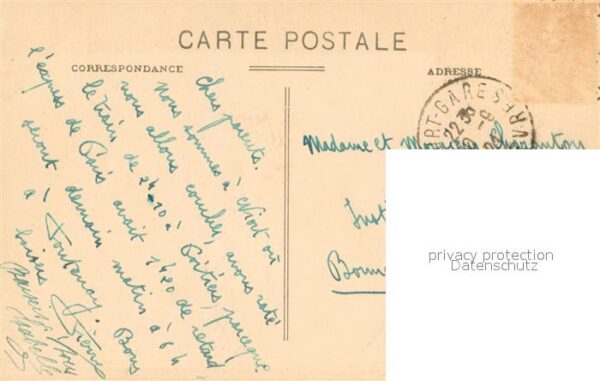 CARTE POSTALE
CORRESPONDANCE
ADRESSE
chers parents.
nous sommes à Niort où
nous allons coucher, avons raté
le train de 24-10 à Poitiers, parceque
l'express de Paris avait 1h20 de retard
serons demain matin à 6h
à Fontenay. Bons
baisers Pierre
RT-GARE
SÈVRES
22
Madame et Monsieur Charenton
Insti
privacy protection
Datenschutz